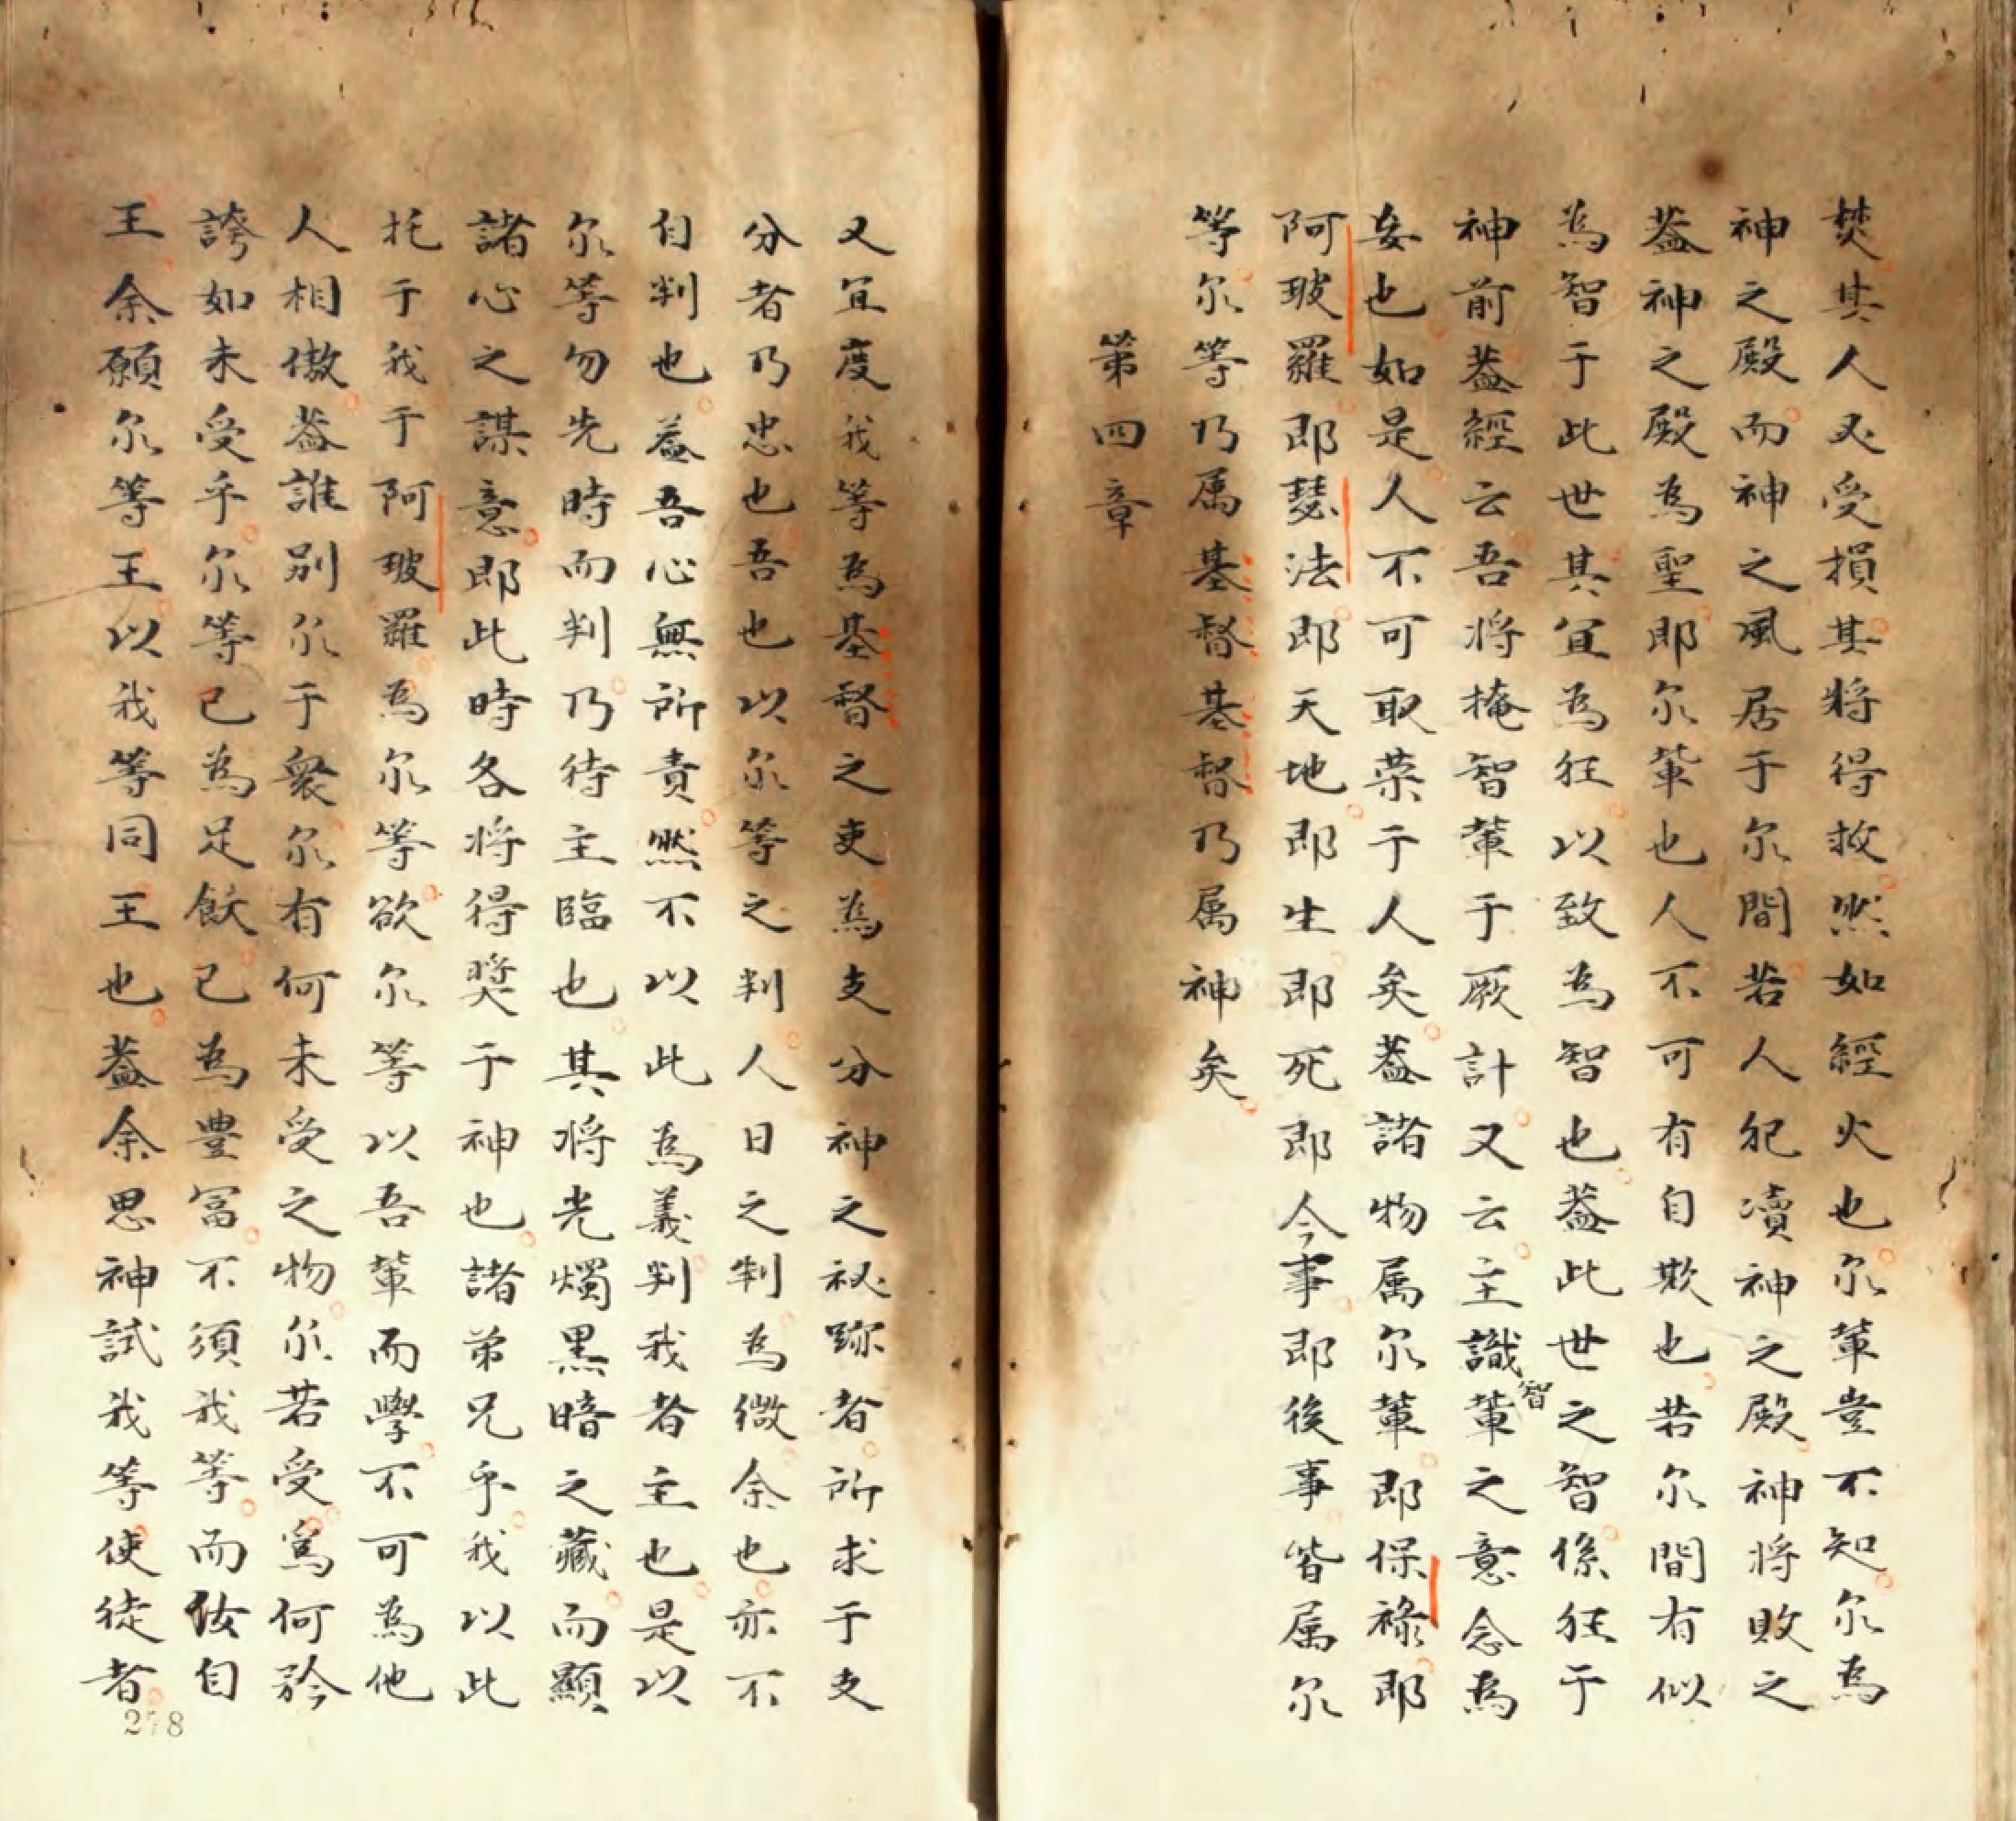 焚其人又受損其將得救然如經火也尔輩豈不知尔為
神之殿而神之風居于尔間若人犯瀆神之殿神將敗之
葢神之殿為聖即尔輩也人不可有自欺也若尔間有似
為智于此世其宜為狂以致為智也葢此世之智係狂于
神前葢經云吾將掩智輩于厥計又云主識智輩之意念為
妄也如是人不可取荣于人矣葢諸物属尔輩即保祿即
阿玻羅即瑟法即天地即生即死即今事即後事皆属尔
等尔等乃属基督基督乃属神矣
第四章
又宜度我等為基督之吏為支分神之秘跡者所求于支
分者乃忠也吾也以尔等之判人日之判為微余也亦不
自判也葢吾心無所責然不以此為義判我者主也是以
尔等勿先時而判乃待主臨也其將光燭黒暗之藏而顯
諸心之謀意即此時各將得奬于神也諸弟兄乎我以此
托于我于阿玻羅為尔等欲尔等以吾輩而學不可為他
人相傲葢誰別尔于衆尔有何未受之物尔若受爲何矜
誇如未受乎尔等已為足飫已為豊冨不須我等而伩自
王余願尔等王以我等同王也葢余思神試我等使徒者
278